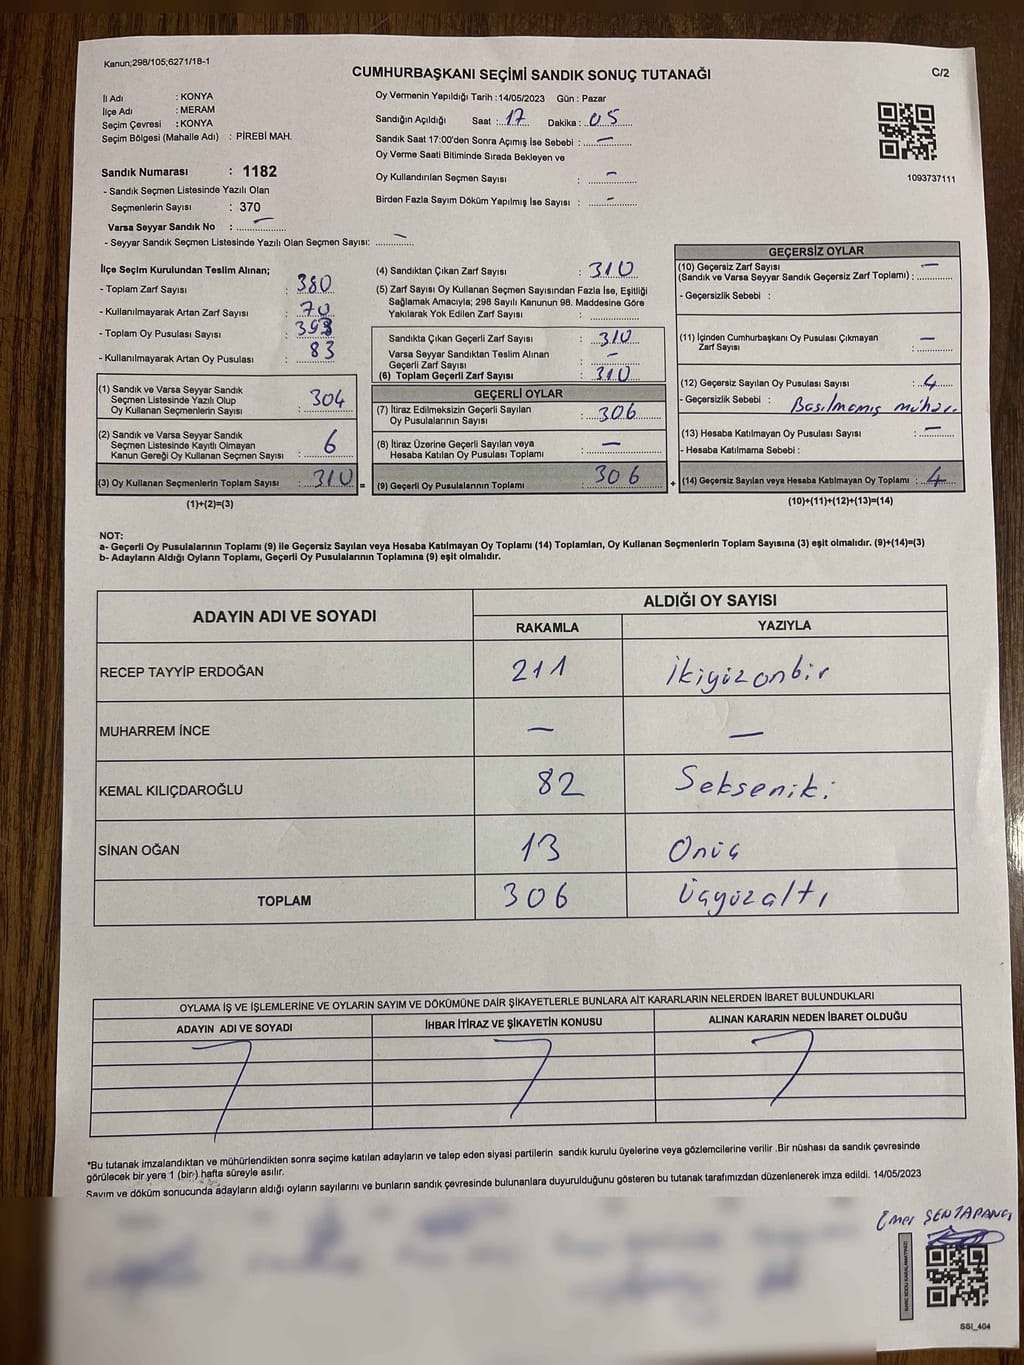 Kanun;298/105;6271/18-1
CUMHURBAŞKANI SEÇİMİ SANDIK SONUÇ TUTANAĞI
C/2
İl Adı : KONYA
İlçe Adı : MERAM
Seçim Çevresi : KONYA
Seçim Bölgesi (Mahalle Adı) : PİREBİ MAH.
Oy Vermenin Yapıldığı Tarih :14/05/2023 Gün : Pazar
Sandığın Açıldığı Saat : 17 Dakika : 05
Sandık Saat 17:00'den Sonra Açımış İse Sebebi : –
Oy Verme Saati Bitiminde Sırada Bekleyen ve
Oy Kullandırılan Seçmen Sayısı : –
Birden Fazla Sayım Döküm Yapılmış İse Sayısı : –
1093737111
Sandık Numarası : 1182
- Sandık Seçmen Listesinde Yazılı Olan
Seçmenlerin Sayısı : 370
Varsa Seyyar Sandık No : –
- Seyyar Sandık Seçmen Listesinde Yazılı Olan Seçmen Sayısı: –
İlçe Seçim Kurulundan Teslim Alınan;
- Toplam Zarf Sayısı : 380
- Kullanılmayarak Artan Zarf Sayısı : 70
- Toplam Oy Pusulası Sayısı : 393
- Kullanılmayarak Artan Oy Pusulası : 83
(1) Sandık ve Varsa Seyyar Sandık
Seçmen Listesinde Yazılı Olup
Oy Kullanan Seçmenlerin Sayısı : 304
(2) Sandık ve Varsa Seyyar Sandık
Seçmen Listesinde Kayıtlı Olmayan
Kanun Gereği Oy Kullanan Seçmen Sayısı : 6
(3) Oy Kullanan Seçmenlerin Toplam Sayısı : 310
(1)+(2)=(3)
=
(4) Sandıktan Çıkan Zarf Sayısı : 310
(5) Zarf Sayısı Oy Kullanan Seçmen Sayısından Fazla İse, Eşitliği
Sağlamak Amacıyla; 298 Sayılı Kanunun 98. Maddesine Göre
Yakılarak Yok Edilen Zarf Sayısı :
Sandıkta Çıkan Geçerli Zarf Sayısı : 310
Varsa Seyyar Sandıktan Teslim Alınan
Geçerli Zarf Sayısı : –
(6) Toplam Geçerli Zarf Sayısı : 310
GEÇERLİ OYLAR
(7) İtiraz Edilmeksizin Geçerli Sayılan
Oy Pusulalarının Sayısı : 306
(8) İtiraz Üzerine Geçerli Sayılan veya
Hesaba Katılan Oy Pusulası Toplamı : –
(9) Geçerli Oy Pusulalarının Toplamı : 306
+
GEÇERSİZ OYLAR
(10) Geçersiz Zarf Sayısı
(Sandık ve Varsa Seyyar Sandık Geçersiz Zarf Toplamı) : –
- Geçersizlik Sebebi :
(11) İçinden Cumhurbaşkanı Oy Pusulası Çıkmayan
Zarf Sayısı : –
(12) Geçersiz Sayılan Oy Pusulası Sayısı : 4
- Geçersizlik Sebebi : Basılmamış mühür
(13) Hesaba Katılmayan Oy Pusulası Sayısı : –
- Hesaba Katılmama Sebebi :
(14) Geçersiz Sayılan veya Hesaba Katılmayan Oy Toplamı : 4
(10)+(11)+(12)+(13)=(14)
NOT:
a- Geçerli Oy Pusulalarının Toplamı (9) ile Geçersiz Sayılan veya Hesaba Katılmayan Oy Toplamı (14) Toplamları, Oy Kullanan Seçmenlerin Toplam Sayısına (3) eşit olmalıdır. (9)+(14)=(3)
b- Adayların Aldığı Oyların Toplamı, Geçerli Oy Pusulalarının Toplamına (9) eşit olmalıdır.
ADAYIN ADI VE SOYADI
ALDIĞI OY SAYISI
RAKAMLA YAZIYLA
RECEP TAYYİP ERDOĞAN 211 İkiyüzonbir
MUHARREM İNCE – –
KEMAL KILIÇDAROĞLU 82 Sekseniki
SİNAN OĞAN 13 Onüç
TOPLAM 306 Üçyüzaltı
OYLAMA İŞ VE İŞLEMLERİNE VE OYLARIN SAYIM VE DÖKÜMÜNE DAİR ŞİKAYETLERLE BUNLARA AİT KARARLARIN NELERDEN İBARET BULUNDUKLARI
ADAYIN ADI VE SOYADI İHBAR İTİRAZ VE ŞİKAYETİN KONUSU ALINAN KARARIN NEDEN İBARET OLDUĞU
*Bu tutanak imzalandıktan ve mühürlendikten sonra seçime katılan adayların ve talep eden siyasi partilerin sandık kurulu üyelerine veya gözlemcilerine verilir .Bir nüshası da sandık çevresinde
görülecek bir yere 1 (bir) hafta süreyle asılır.
Sayım ve döküm sonucunda adayların aldığı oyların sayılarını ve bunların sandık çevresinde bulunanlara duyurulduğunu gösteren bu tutanak tarafımızdan düzenlenerek imza edildi. 14/05/2023
SSI_404